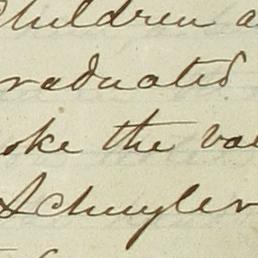 Children a
raduated
oke the va
Schuyler